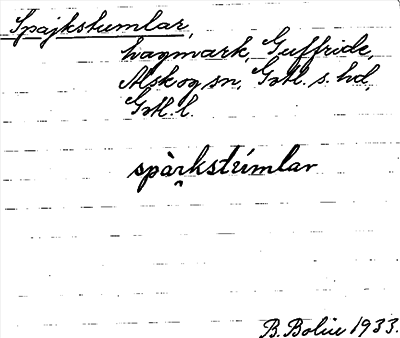 Spajkstumlar,
hagmark, Guffride,
Alskog sn, Gotl. s. hd,
Gotl. l.
spàrkstúmlar
B. Bolin 1933.